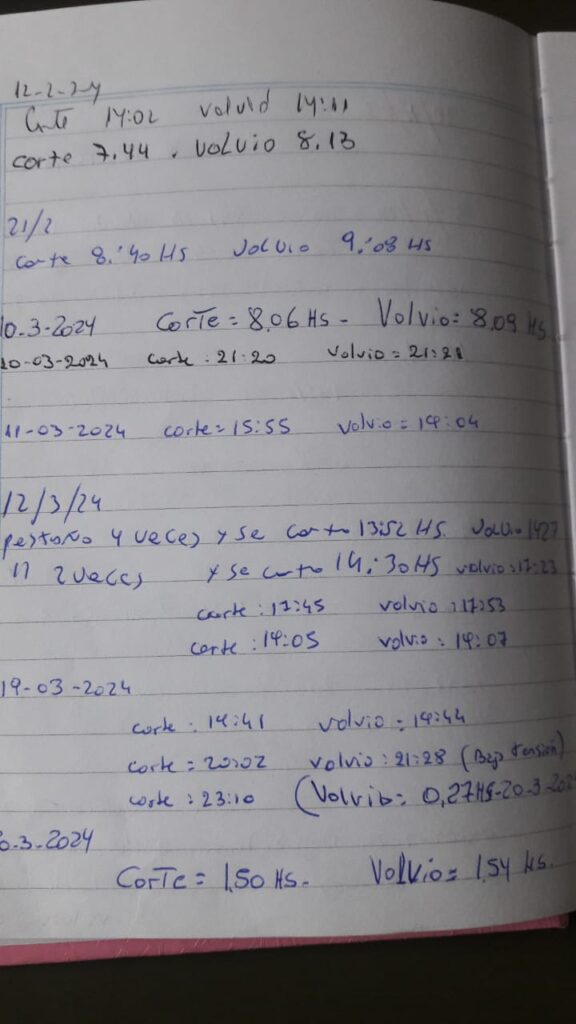 12-2-24
Corte 14:02 volvió 14:11
corte 7.44 . volvio 8.13
21/2
corte 8:40 HS volvio 9:08 HS
10.3-2024 Corte = 8,06 Hs - Volvio = 8,09 Hs.
10-03-2024 corte : 21:20 volvio = 21:21
11-03-2024 corte = 15:55 volvio = 19:04
12/3/24
pestaño 4 veces y se corto 13:52 HS. volvio 1427
11 2 veces y se corto 14:30 HS volvio : 17:23
corte : 17:45 volvio : 17:53
corte : 19:05 volvio : 19:07
19-03-2024
corte : 19:41 volvio : 19:44
corte = 20:02 volvio : 21:28 (Baja tensión)
corte : 23:10 (Volvio = 0,27 HS-20-3-202
0.3.2024
Corte = 1,50 Hs. - Volvio = 1,54 hs.